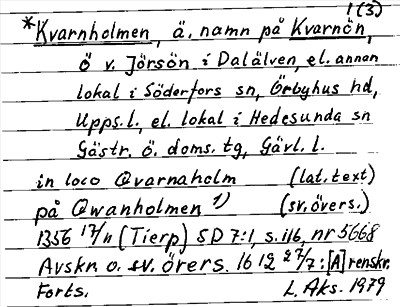 1(3)
*Kvarnholmen, ä. namn på Kvarnön,
ö v. Jörsön i Dalälven, el. annan
lokal i Söderfors sn, Örbyhus hd,
Upps. l., el. lokal i Hedesunda sn
Gästr. ö. doms. tg, Gävl. l.
in loco Qvarnaholm (lat. text)
på Qwanholmen 1) (sv. övers.)
1356 17/11 (Tierp) SD 7:1, s. 116, nr 5668
Avskr. o. sv. övers. 1612 27/7: [A] renskr.
Forts. L. Aks. 1979